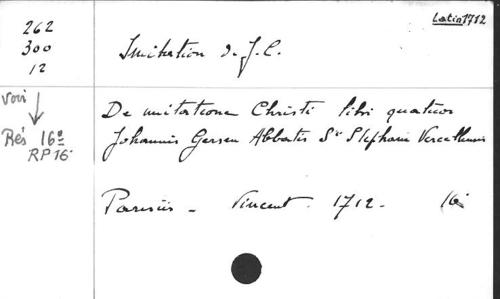 Latin 1712
262
300
12
Imitation de J. C.
voir
Rés 16º
RP 16º
De imitatione Christi libri quatuor
Johannis Gersen Abbatis Sti Stephani Vercellensis
Parisiis - Vincent. 1712 - 16º